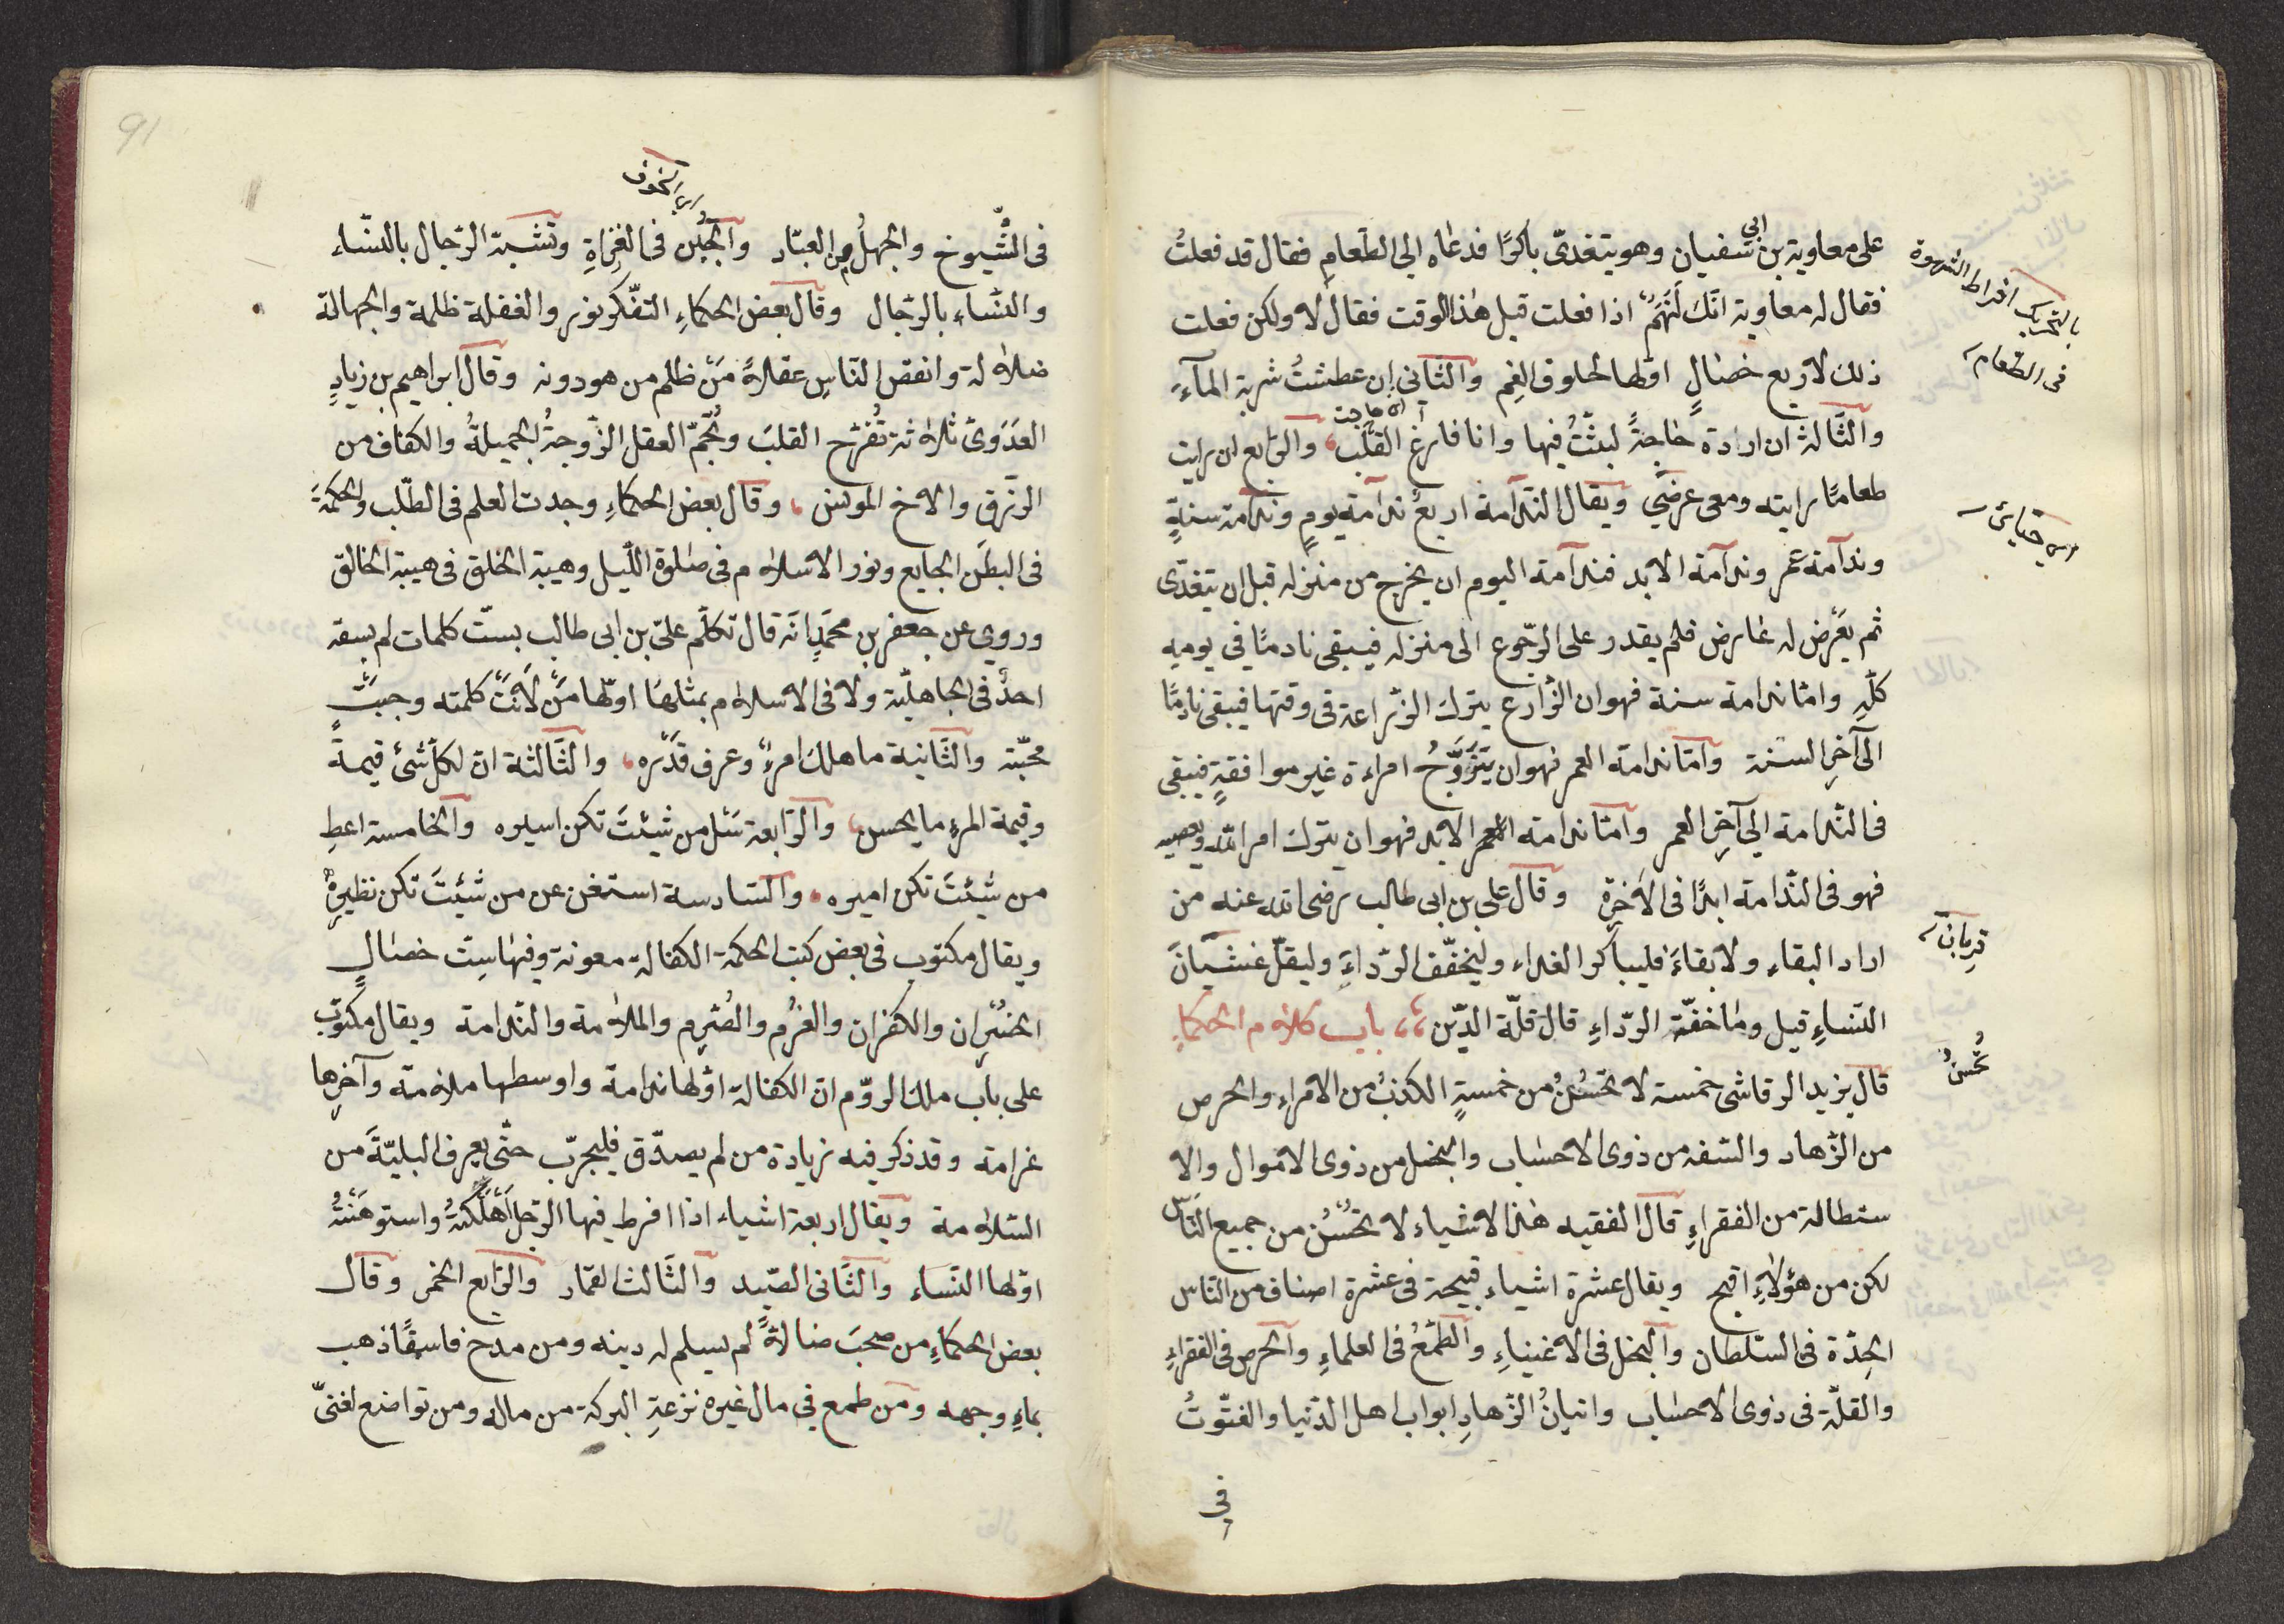 على معاوية بن ابي سفيان وهو يتغدّى باكرًا فدعاه الى الطعام فقال قد فعلتُ
فقال له معاوية انّك لَنَهِمٌ اذا فعلت قبل هذا الوقت فقال لا ولكن فعلت
ذلك لاربع خصالٍ اوّلها لخلوق الفم والثانى ان عطشتُ شربة المآء
والثّالثة ان ارادة حاجةً لبثتُ فيها وانا فارغ القلب، والرّابع ان رايت
اى حاجت
طعامًا رايته ومعى عرضى ويقال النّدامة اربع ندامة يومٍ وندامة سنةٍ
وندامة عمر وندامة الابد فندامة اليوم ان يخرج من منزله قبل ان يتغدّى
ثم يعْرض له عارض فلم يقدر على الرّجوع الى منزله فيبقى نادمًا في يوميه
كلّه وامّا ندامة سنة فهو ان الزّارع يترك الزّراعة فى وقتها فيبقى نادمًا
الى آخر السنة وامّا ندامة العمر فهو ان يتَزَوَّجُ امراءة غير موافقةٍ فيبقى
فى النّدامة الى آخر العمر وامّا ندامة الابد فهو ان يترك امر الله ويعصيه
فهو فى النّدامة ابدًا فى الآخرة وقال على بن ابى طالب رضى الله عنه من
اراد البقاء ولا بقاءَ فليباكر الغداء وليخفّف الرّداءَ وليقلّ غشيانَ
النّساءِ قيل وما خفّة الرّداءِ قال قلّة الدّين ،، باب كلام الحكماءِ
قال يزيد الرقاشى خمسة لا تحْسُنُ من خمسةٍ الكذبُ من الامراءِ والحرص
من الزّهاد والسّفه من ذوى الاحساب والبخل من ذوى الاموال والا
ستطالة من الفقراءِ قال الفقيه هذا الاشياء لا تحْسُنُ من جميع النّاس
لكن من هؤلاءِ اقبح ويقال عشرة اشياء قبيحة فى عشرة اصناف من النّاس
الحِدّة فى السّلطان والبخل فى الاغنياءِ والطّمعُ فى العلماءِ والحرص فى الفقراءِ
والقلّة فى ذوى الاحساب واتيانُ الزّهادِ ابواب اهل الدّنيا والفتّوتُ
فى
بالتحريك افراط الشهوة
فى الطعام
قربان
تحْسُنُ
91
اى الخوف
فى الشُّيوخ والجهلُ من العبّاد والجُبْن فى الغزاةِ وتشبّة الرّجال بالنسّاء
والنسّاء بالرّجال وقال بعض الحكماءِ التفّكر نور والغفلة ظلمة والجهالة
ضلالة وانقص النّاسِ عقلاً مَنْ ظلم من هو دونه وقال ابراهيم بن زيادٍ
العدَوىّ ثلاثة تُفْرِح القلبَ وتُجِمّ العقل الزّوجةُ الجميلةُ والكفاف من
الرّزق والاخ المونس، وقال بعض الحكماءِ وجدت العلم فى الطّلب والحكمة
فى البطن الجايع ونور الاسلام فى صلوة اللّيل وهيبة الخلق فى هيبة الخالق
وروى عن جعفر بن محمدٍ انّه قال تكلّم علىّ بن ابى طالب بستّ كلمات لم يسبقه
احدٌ فى الجاهليّة ولا فى الاسلام بمثلها اوّلها مَنْ لَانَتْ كلمته وجبَتْ
محبّته والثّانية ما هلك امرءٌ وعرف قدْره، والثّالثة انّ لكلّ شئ قيمةً
وقيمة المرءِ ما يحسن، والرّابعة سَئل من شِئتَ تكن اسيره والخامسة اعطِ
من شِئتَ تكن اميره، والسّادسة استغن عن من شِئتَ تكن نظيره
ويقال مكتوب فى بعض كتب الحكمة الكفالة معونة وفيها ستّ خصالٍ
الخسْران والكفران والغرْم والصُرم والملامة والنّدامة ويقال مكتوب
على باب ملك الرّوم انّ الكفالة اوّلها ندامة واوسطها ملامة وآخرها
غرامة وقد ذكر فيه زيادة من لم يصدّق فليجرّب حتّى يعرف البليّةَ من
السّلامة ويقال اربعة اشياء اذا افرط فيها الرّجل أَهْلَكَتْهُ واستوهَنَتْهُ
اوّلها النّساء والثّانى الصّيد والثّالث القمار والرّابع الخمر وقال
بعض الحكماءِ من صحبَ ضالاً لم يسلم له دينه ومن مدح فاسقًا ذهب
بماءِ وجهه ومن طمع فى مال غيره نزعة البركة من ماله ومن تواضع لغنىّ